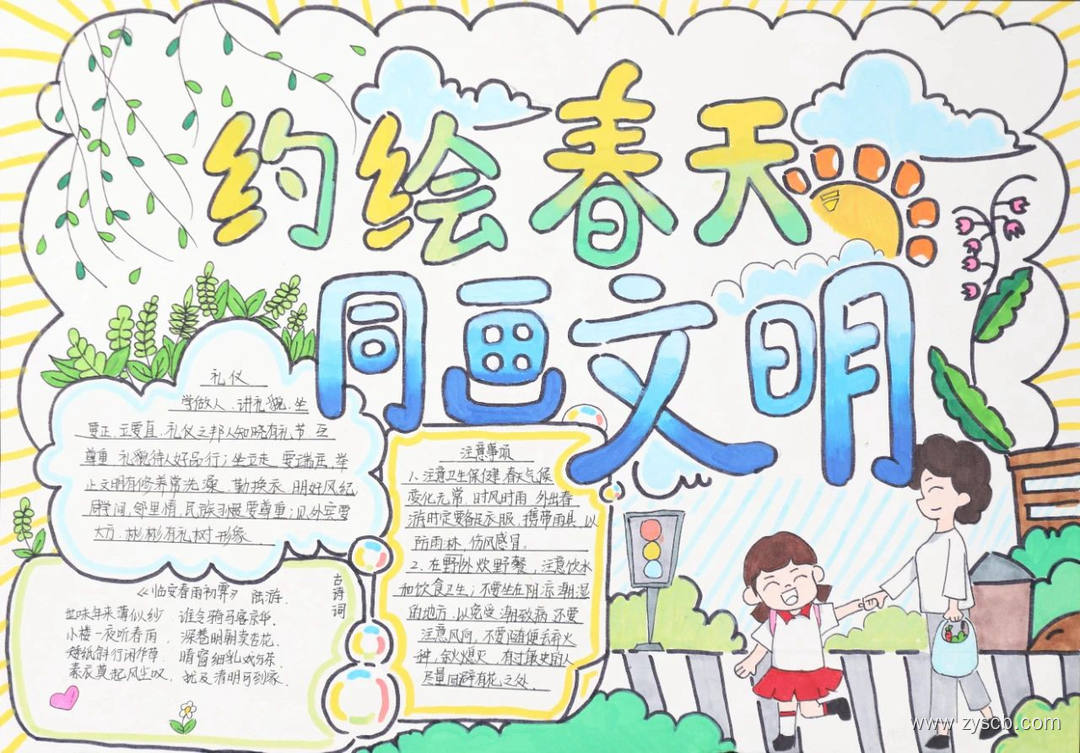 约绘春天
同画文明
礼仪
学做人、讲礼貌、坐
要正、立要直、礼仪之邦人知晓有礼节互
尊重、礼貌待人好品行；坐立走、要端正、举
止文明有修养常洗澡、勤换衣、
居民族习惯要尊重；见外宾要
大方、彬彬有礼树形象、
注意事项
1、注意卫生保健、春天气候
变化无常、时风时雨、外出春
游时定要备足衣服、携带雨具、以
防雨林、伤风感冒、
2、在野外炊野餐、注意饮水
和饮食卫生；不要坐在阴凉潮湿
的地方、以免受潮致病、还要
注意风向、不要随便丢弃火
种、
尽量回避有花之处、
古诗词
《临安春雨初霁》 陆游.
世味年来薄似纱 谁令骑马客京华.
小楼一夜听春雨. 深巷明朝卖杏花.
矮纸斜行闲作草. 晴窗细乳戏分茶.
素衣莫起风尘叹. 犹及清明可到家.
www.zyscb.com